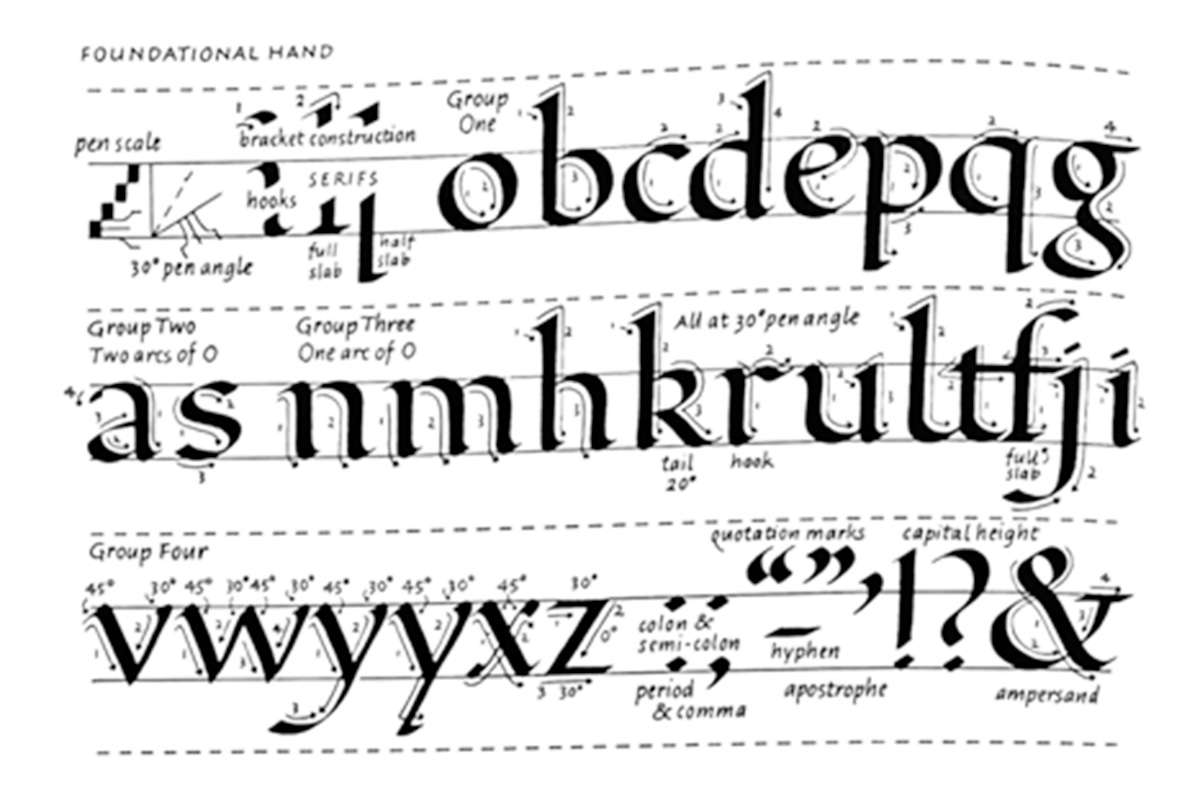 FOUNDATIONAL HAND
pen scale
1 2
bracket construction
hooks
SERIFS
full slab
half slab
30° pen angle
Group One
o b c d e p q g
Group Two
Two arcs of O
Group Three
One arc of O
All at 30° pen angle
a s n m h k r u l t f j i
tail 20°
hook
full slab
Group Four
45° 30° 45° 30° 45° 30° 45° 30° 45° 30° 45° 30°
v w y y x z
0°
3 30°
colon & semi-colon
: ;
period & comma
quotation marks
“ ”
hyphen
-
’
apostrophe
capital height
! ? &
ampersand